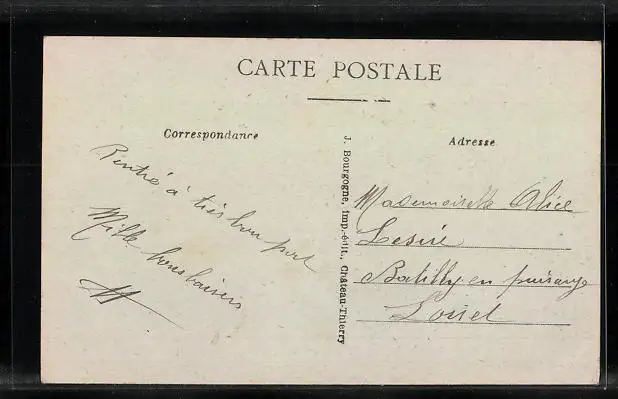 CARTE POSTALE
Correspondance
Rentré à très bon port
Mille bons baisers
J. Bourgogne, imp.-édit., Château-Thierry
Adresse
Mademoiselle Alice
Lesire
Batilly en puisaye
Loiret